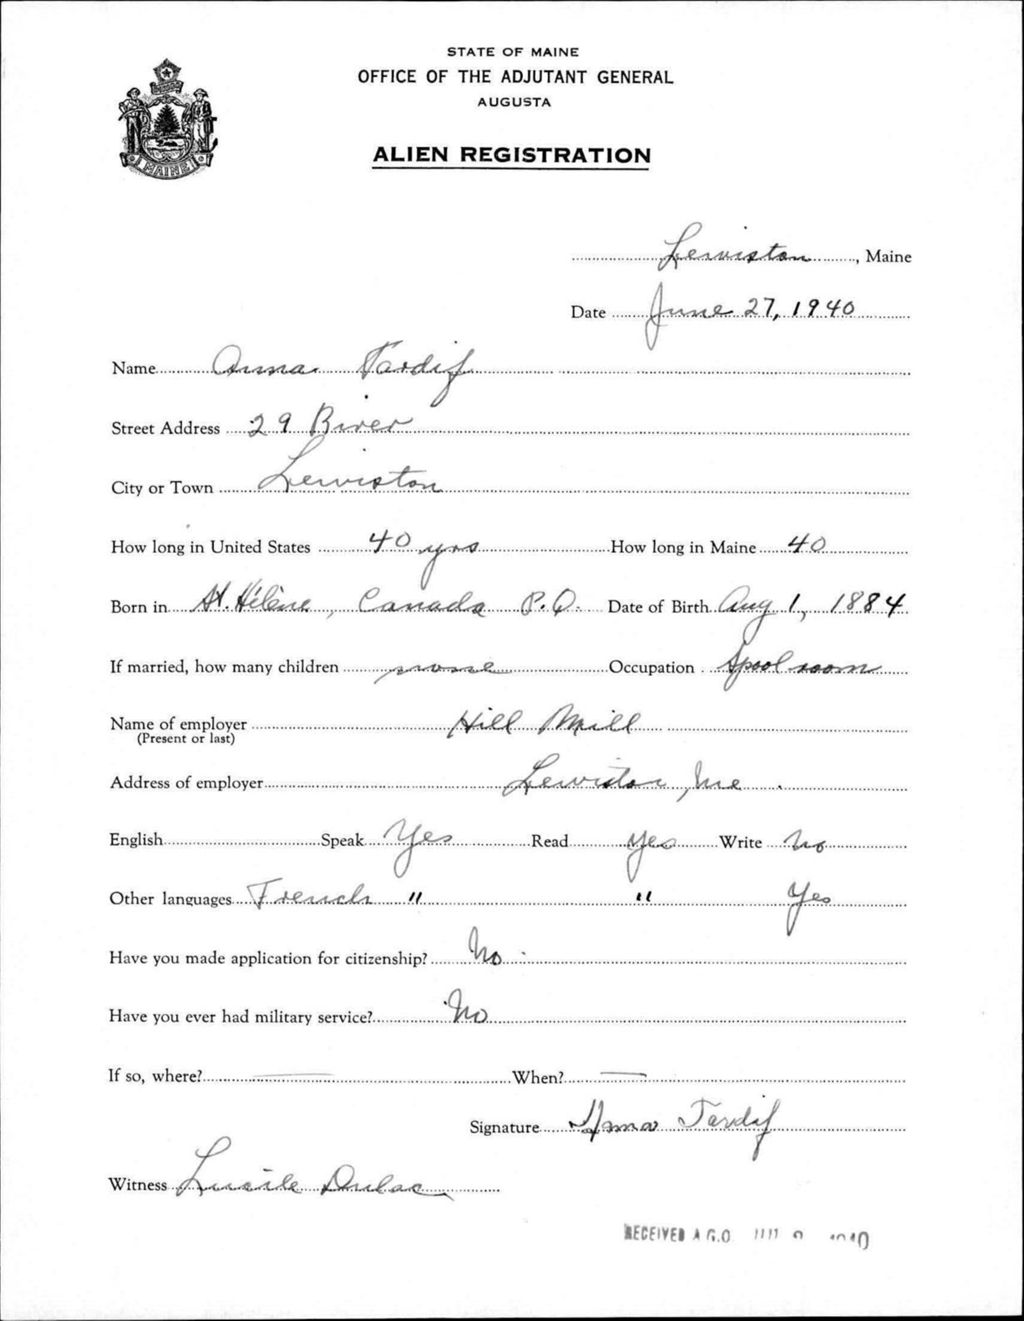 STATE OF MAINE
OFFICE OF THE ADJUTANT GENERAL
AUGUSTA
ALIEN REGISTRATION
MAINE
Lewiston, Maine
Date June 27, 1940
Name Anna Tardif
Street Address 29 River
City or Town Lewiston
How long in United States 40 yrs How long in Maine 40
Born in St. Hélène, Canada P.Q. Date of Birth Aug 1, 1884
If married, how many children none Occupation Spool room
Name of employer Hill Mill
(Present or last)
Address of employer Lewiston, Me.
English Speak Yes Read Yes Write No
Other languages French " " Yes
Have you made application for citizenship? No
Have you ever had military service? No
If so, where? — When? —
Signature Anna Tardif
Witness Lucile Dulac
RECEIVED A.G.O. 1940